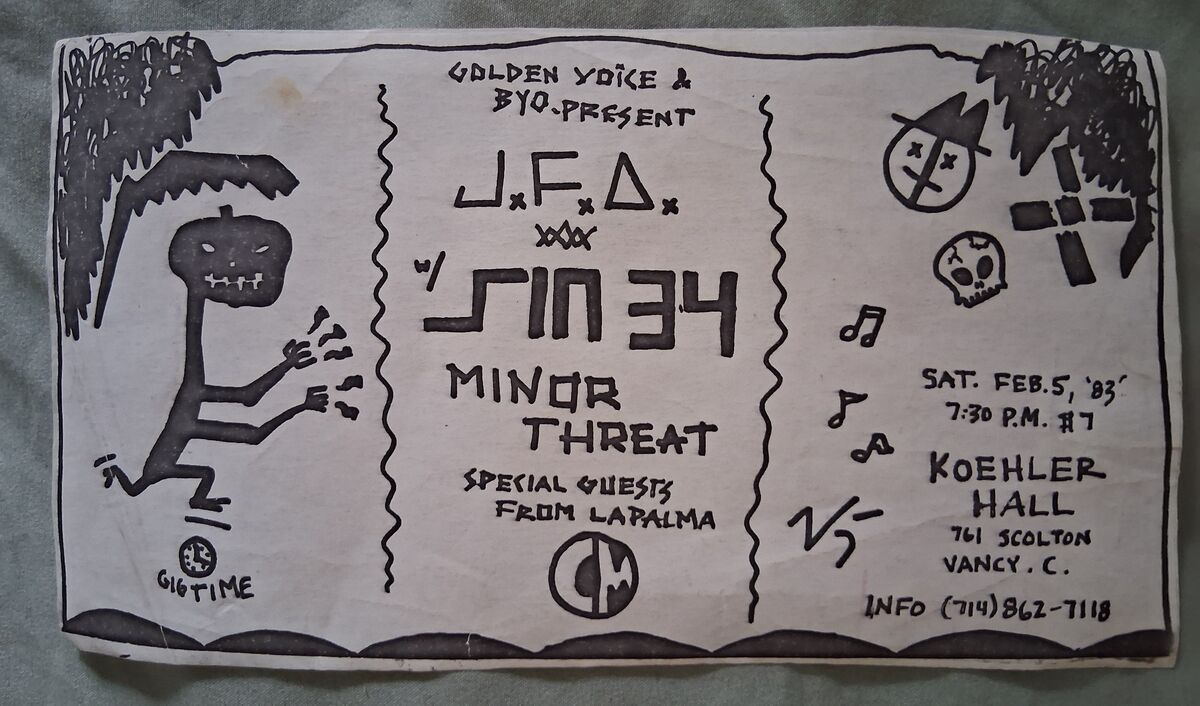 GOLDEN VOICE &
BYO. PRESENT
J.F.A.
W/ SIN 34
MINOR
THREAT
SPECIAL GUESTS
FROM LAPALMA
GIGTIME
SAT. FEB. 5, '83'
7:30 P.M. $7
KOEHLER
HALL
761 SCOLTON
VANCY. C.
INFO (714) 862-7118